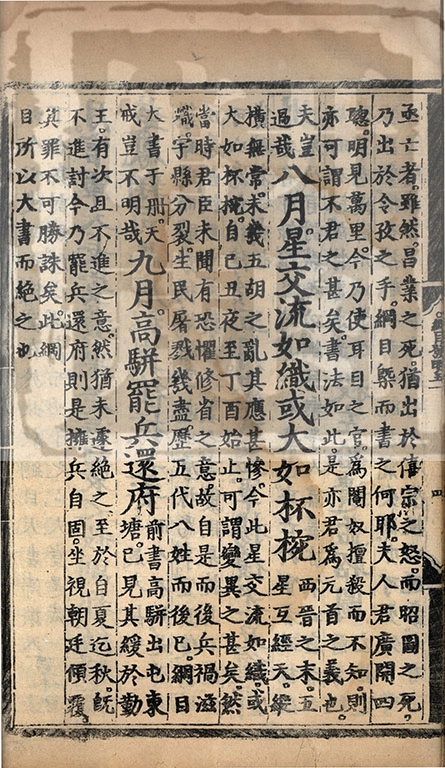 亟亡者。雖然。昌業之死。猶出於僖宗之怒。而昭圖之死。
乃出於令孜之手。綱目槩而書之何耶。夫人君廣開四
聰。明見萬里。今乃使耳目之官。為閹奴擅殺而不知。則
亦可謂不君之甚矣。書法如此。是亦君為元首之義也。
夫豈
過哉
八月。星交流如織或大如杯椀
西晉之末。五
星互經天。縱
橫無常。未幾五胡之亂。其應甚慘。今此星交流如織。或
大如杯椀。自己丑夜至丁酉始止。可謂變異之甚矣。然
當時君臣。未聞有恐懼修省之意。故自是而後。兵禍滋
熾。宇縣分裂。生民屠戮幾盡。歷五代八姓而後已。綱目
大書于冊。天
戒豈不明哉
九月。高駢罷兵還府
前書高駢出屯東
塘。已見其緩於勤
王。有次且不進之意。然猶未遽絕之。至於自夏迄秋。既
不進討。今乃罷兵還府。則是擁兵自固。坐視朝廷傾覆。
其罪不可勝誅矣。此綱
目所以大書而絕之也
四